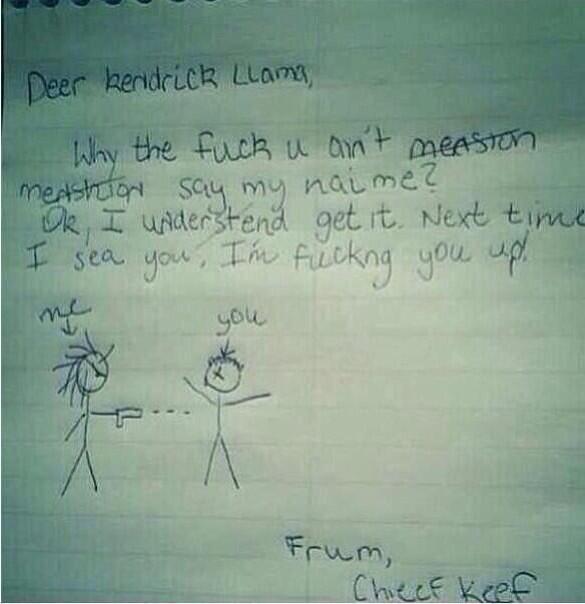 Deer kendrick LLama,
Why the fuck u ain't measton
meastion say my naime?
Ok, I understend get it. Next time
I sea you, I'm fuckng you up!
me
you
Frum,
Chieef Keef